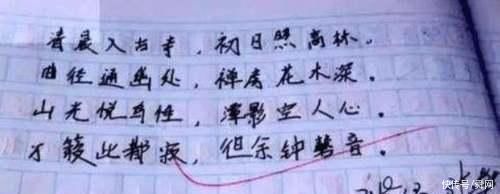 清晨入古寺，初日照高林。
曲径通幽处，禅房花木深。
山光悦鸟性，潭影空人心。
万籁此都寂，但余钟磬音。
快传号